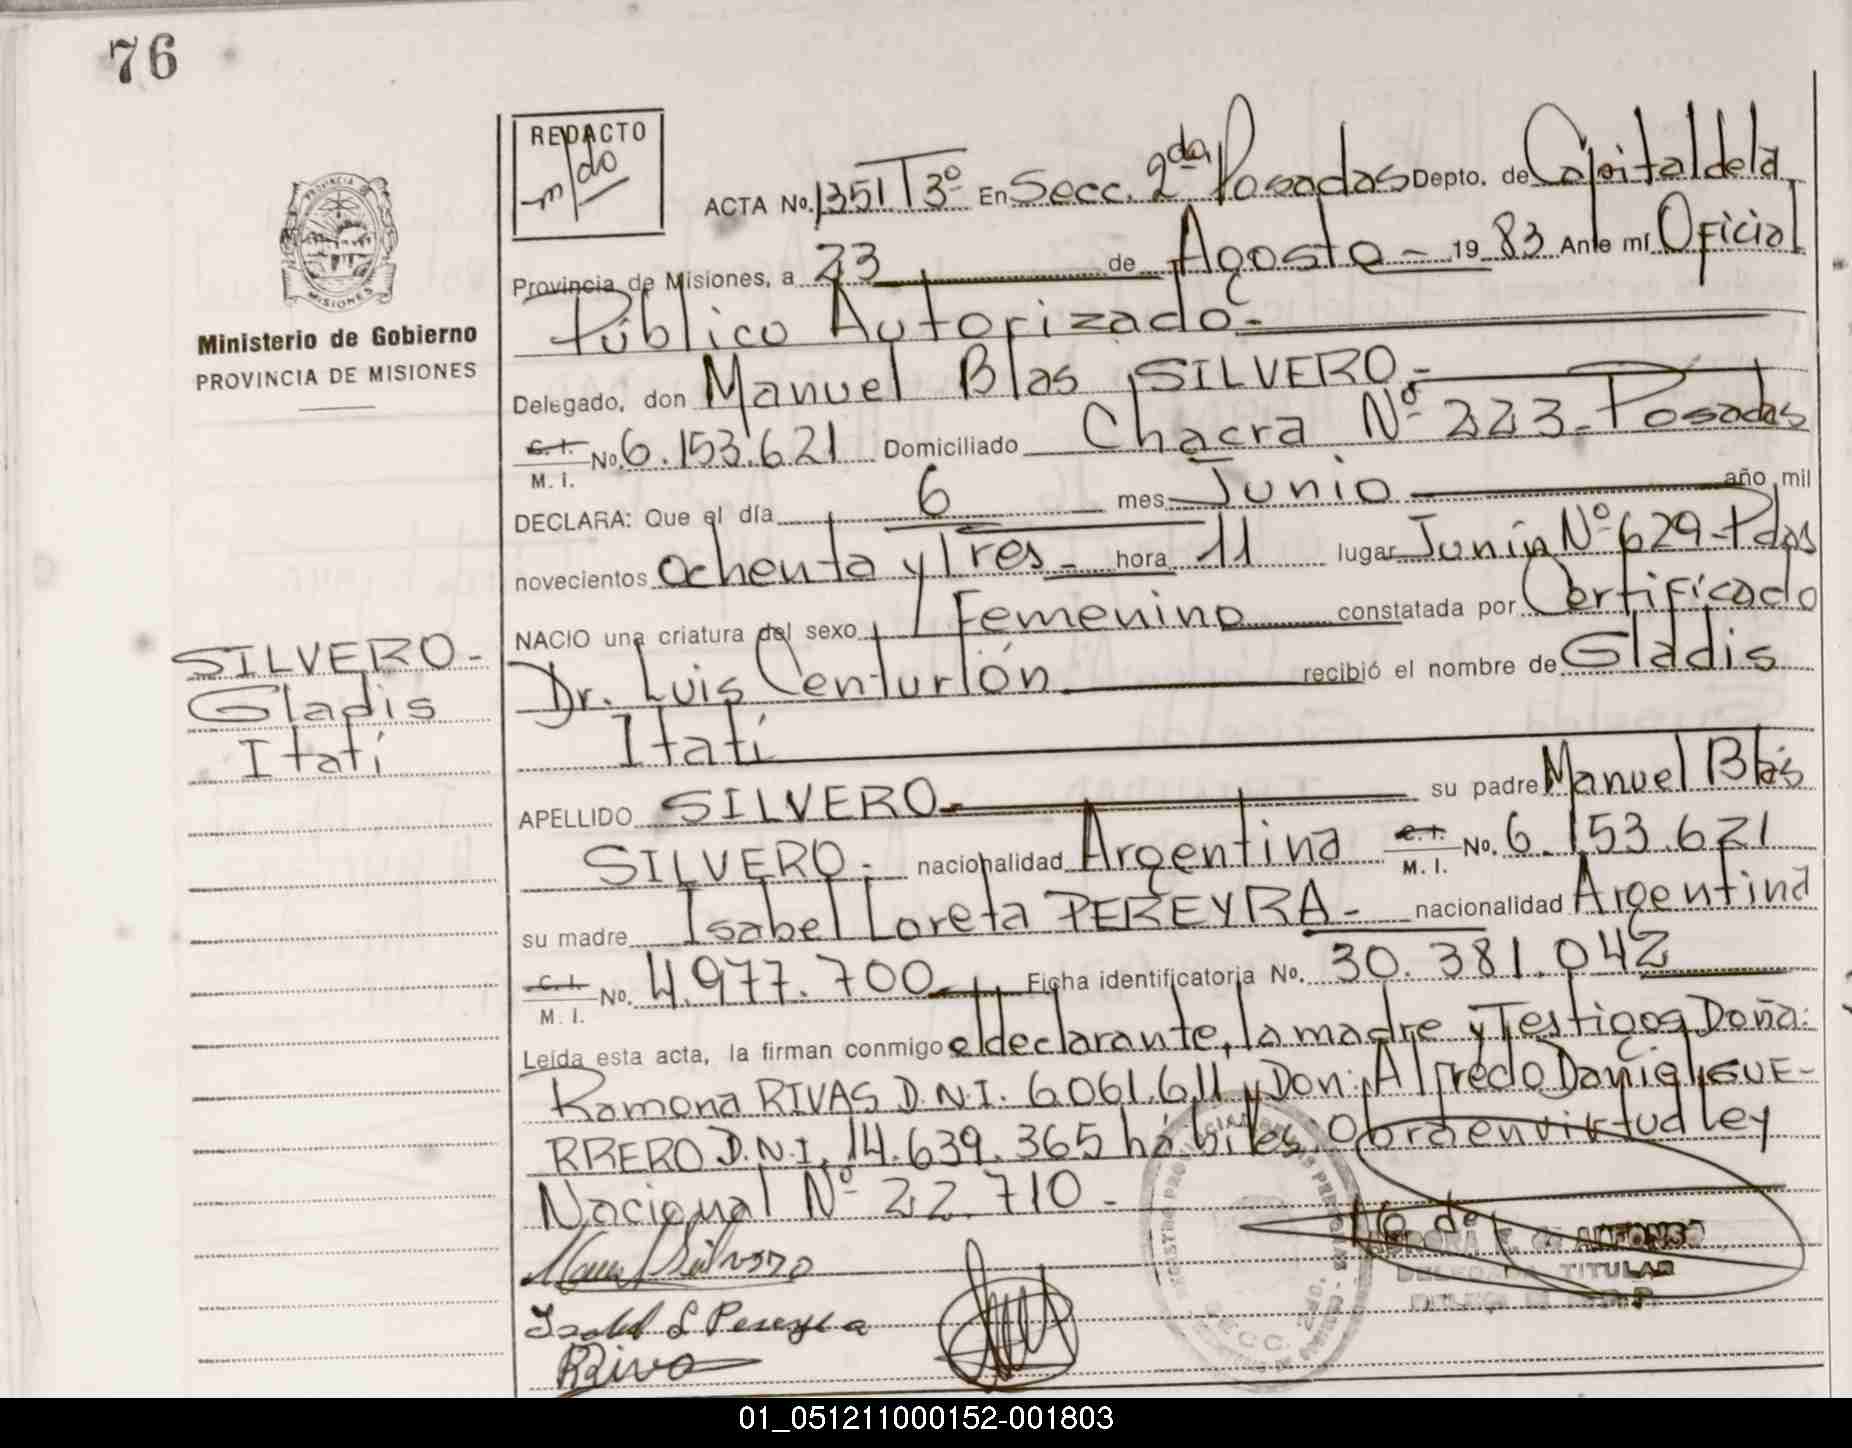 76
REDACTO
m/do
PROVINCIA DE
MISIONES
Ministerio de Gobierno
PROVINCIA DE MISIONES
ACTA No. 1351 T3º En Secc. 2da Posadas Depto. de Capital de la
Provincia de Misiones, a 23 de Agosto - 19 83 Ante mí Oficial
Público Autorizado.-
Delegado, don Manuel Blas SILVERO.-
C. I. M. I. No. 6.153.621 Domiciliado Chacra Nº 223 - Posadas
DECLARA: Que el día 6 mes Junio año mil
novecientos ochenta y Tres - hora 11 lugar Junín Nº 629 - Pdas
NACIO una criatura del sexo Femenino constatada por Certificado
Dr. Luis Centurión recibió el nombre de Gladis
Itatí
SILVERO -
Gladis
Itatí
APELLIDO SILVERO - su padre Manuel Blás
SILVERO - nacionalidad Argentina C. I. M. I. No. 6.153.621
su madre Isabel Loreta PEREYRA - nacionalidad Argentina
C. I. M. I. No. 4.977.700 Ficha identificatoria No. 30.381.042
Leída esta acta, la firman conmigo el declarante, la madre y Testigos Doña:
Ramona RIVAS D.N.I. 6.061.611 y Don: Alfredo Daniel GUE-
RRERO D.N.I. 14.639.365 hábiles. Obra en virtud ley
Nacional Nº 22.710 -
Manuel Silvero
Isabel L Pereyra
DE ALFONSO
DELEGADA TITULAR
SECC. 2da.
01_051211000152-001803